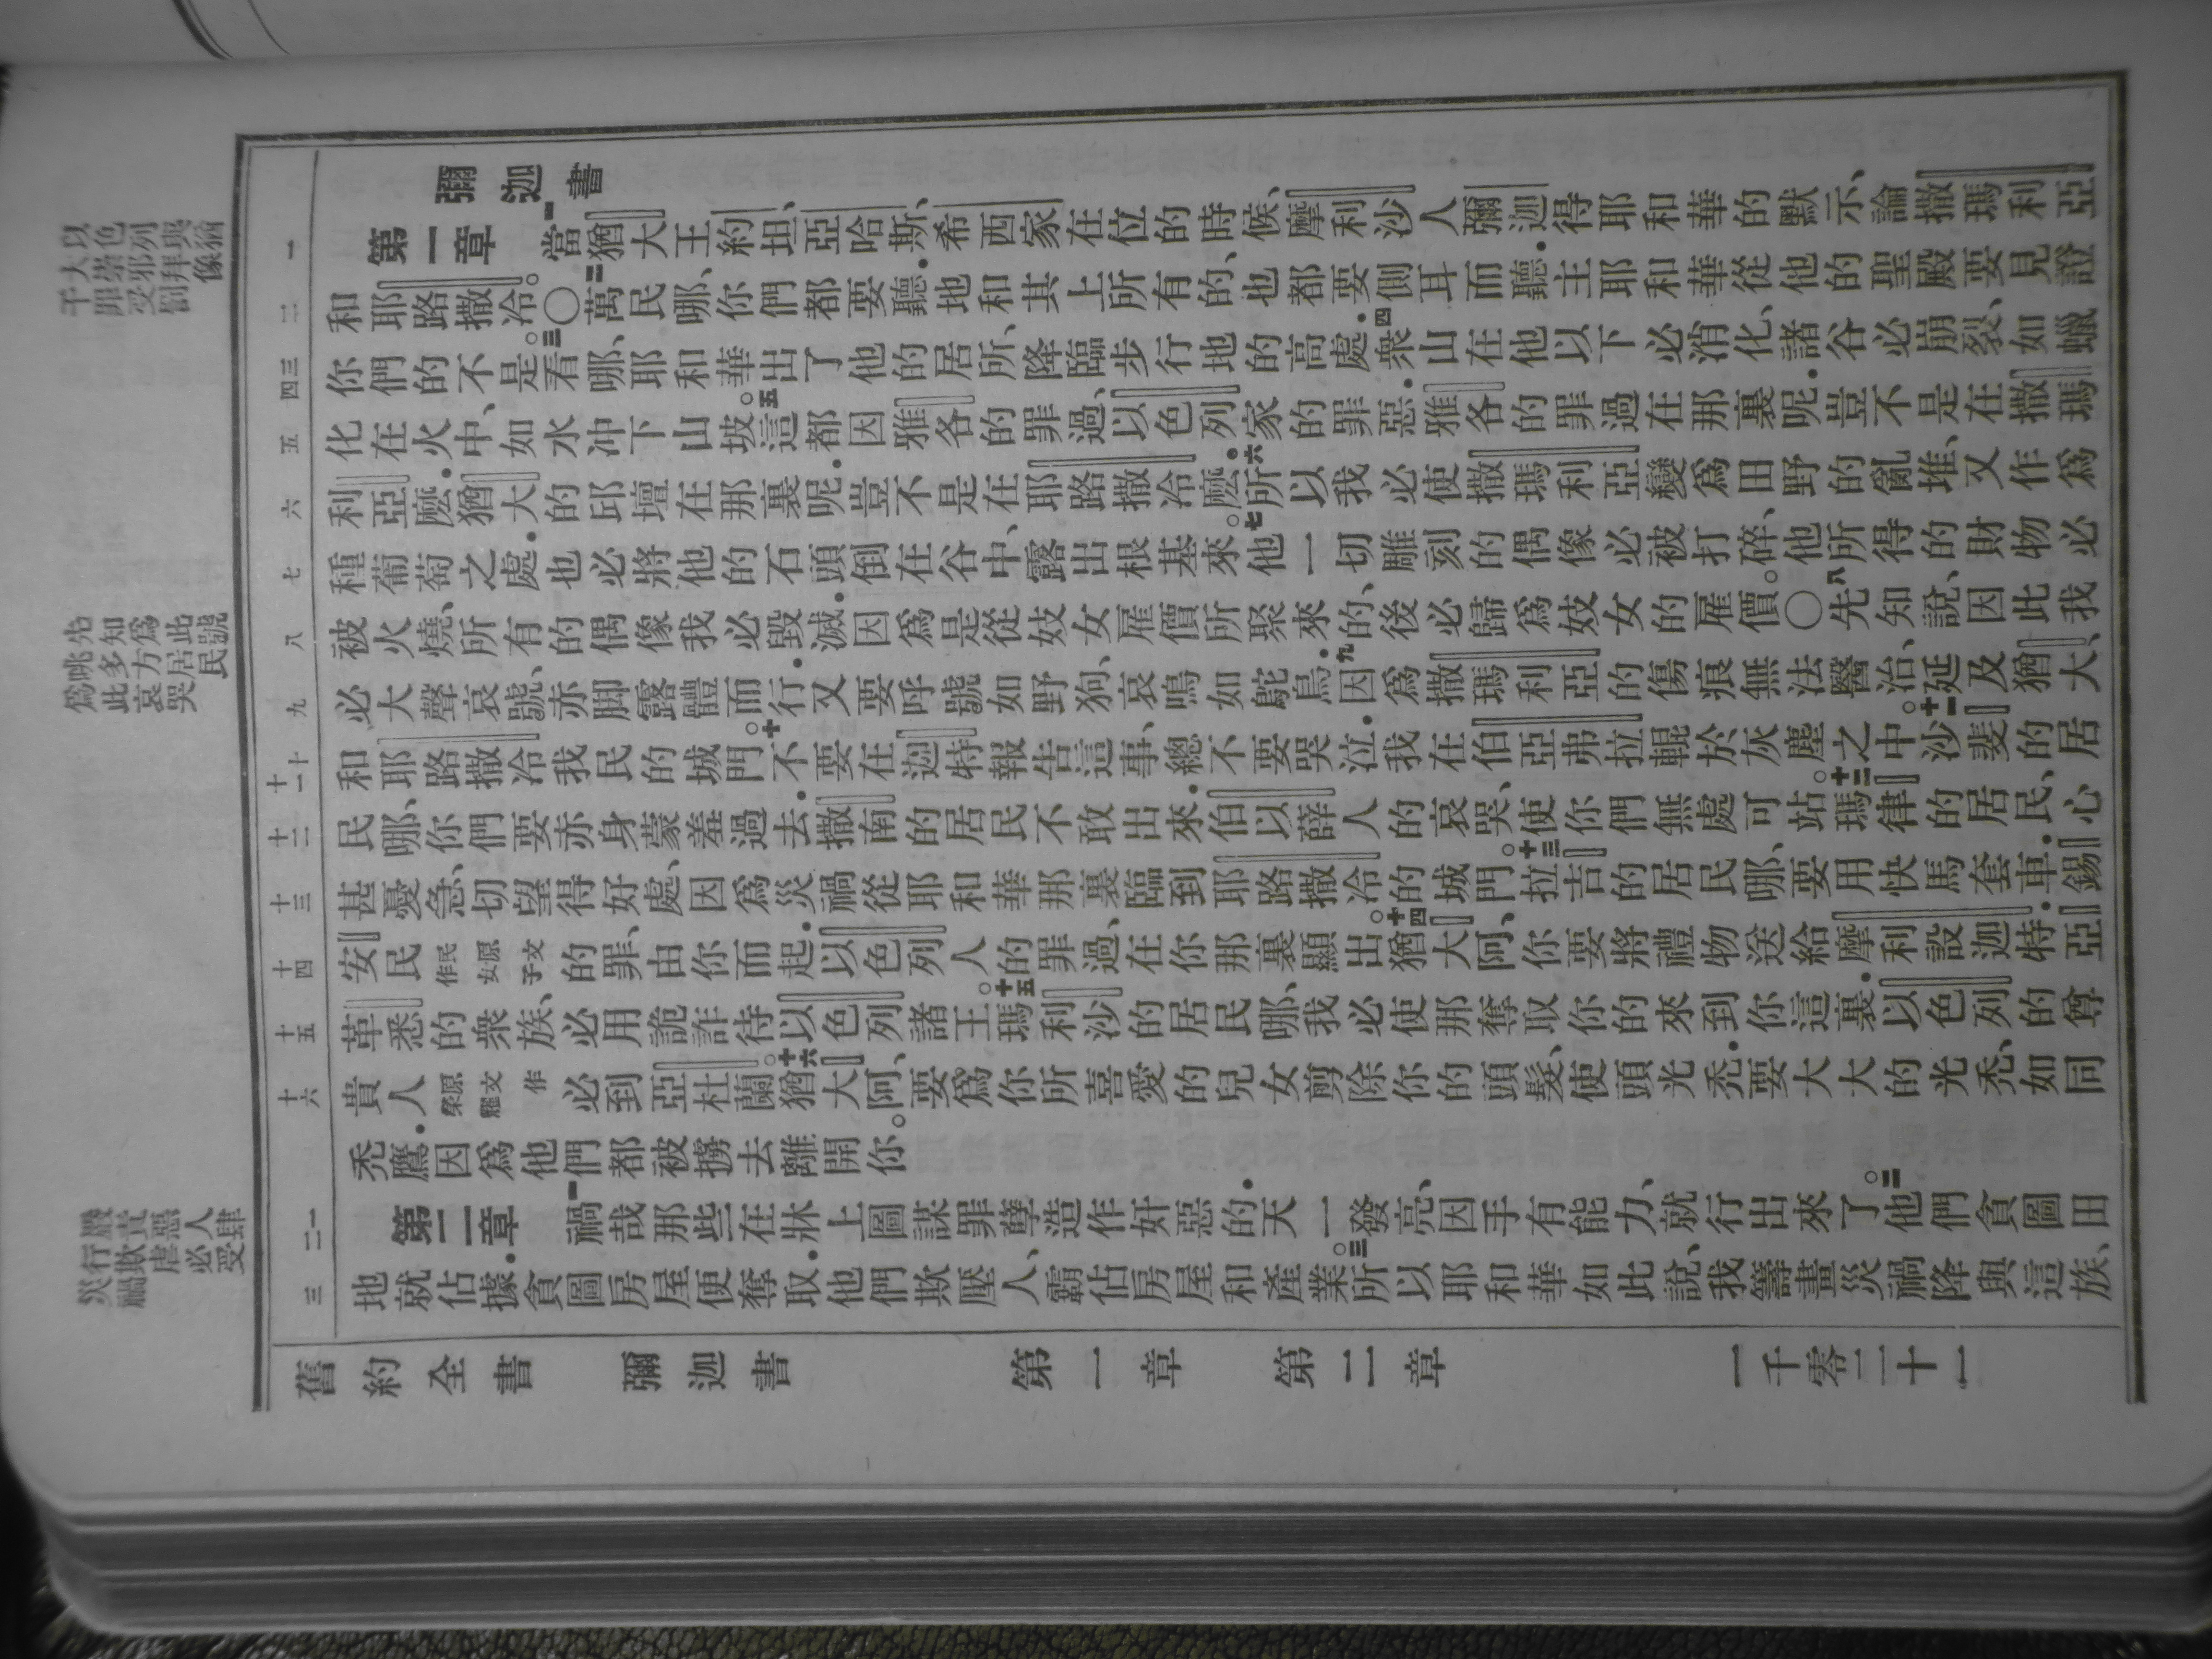 以色列與猶
大崇邪拜像
干罪受罰
先知爲此號
咷多方居民
爲此哀哭
嚴責惡人肆
行欺虐必受
災禍
彌迦書
一
第一章 一當猶大王約坦、亞哈斯、希西家在位的時候、摩利沙人彌迦得耶和華的默示、論撒瑪利亞
二
和耶路撒冷。〇二萬民哪、你們都要聽.地和其上所有的、也都要側耳而聽.主耶和華從他的聖殿要見證
三四
你們的不是。三看哪、耶和華出了他的居所、降臨步行地的高處.四衆山在他以下必消化、諸谷必崩裂、如蠟
五
化在火中、如水冲下山坡。五這都因雅各的罪過、以色列家的罪惡.雅各的罪過在那裏呢.豈不是在撒瑪
六
利亞麽.猶大的邱壇在那裏呢.豈不是在耶路撒冷麽.六所以我必使撒瑪利亞變爲田野的亂堆、又作爲
七
種葡萄之處.也必將他的石頭倒在谷中、露出根基來。七他一切雕刻的偶像必被打碎、他所得的財物必
八
被火燒、所有的偶像我必毀滅.因爲是從妓女雇價所聚來的、後必歸爲妓女的雇價。〇八先知說、因此我
九
必大聲哀號、赤脚露體而行.又要呼號如野狗、哀鳴如鴕鳥.九因爲撒瑪利亞的傷痕無法醫治、延及猶大、
十十一
和耶路撒冷我民的城門。十不要在迦特報告這事、總不要哭泣.我在伯亞弗拉輥於灰塵之中。十一沙斐的居
十二
民哪、你們要赤身蒙羞過去.撒南的居民不敢出來.伯以薛人的哀哭、使你們無處可站。十二瑪律的居民、心
十三
甚憂急、切望得好處、因爲災禍從耶和華那裏臨到耶路撒冷的城門。十三拉吉的居民哪、要用快馬套車.錫
十四
安民民原文作女子的罪、由你而起.以色列人的罪過、在你那裏顯出。十四猶大阿、你要將禮物送給摩利設迦特.亞
十五
革悉的衆族、必用詭詐待以色列諸王。十五瑪利沙的居民哪、我必使那奪取你的來到你這裏.以色列的尊
十六
貴人原文作榮耀必到亞杜蘭。十六猶大阿、要爲你所喜愛的兒女剪除你的頭髮、使頭光禿.要大大的光禿、如同
禿鷹.因爲他們都被擄去離開你。
一二
第二章 一禍哉那些在牀上圖謀罪孽造作奸惡的.天一發亮、因手有能力、就行出來了。二他們貪圖田
三
地就佔據.貪圖房屋便奪取.他們欺壓人、霸佔房屋和產業。三所以耶和華如此說、我籌畫災禍降與這族、
舊約全書 彌迦書 第一章 第二章 一千零二十一